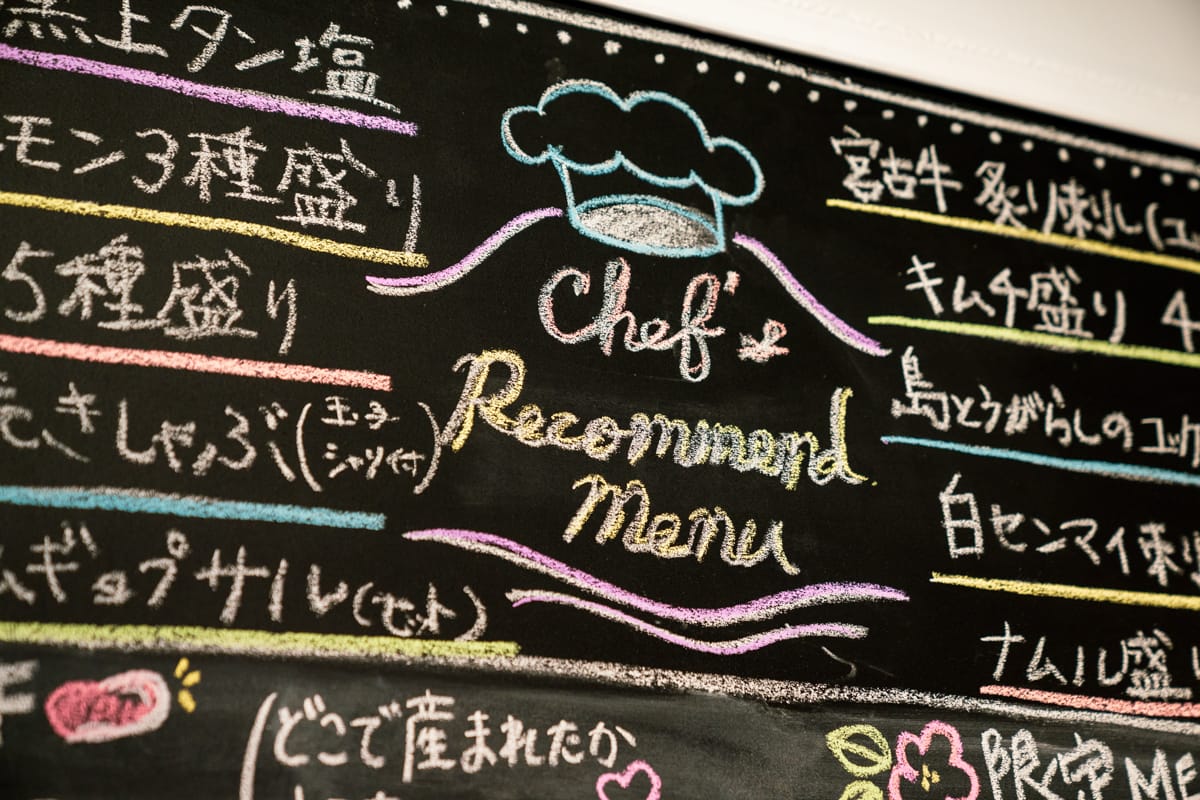 黒上タン塩
モン3種盛り
5種盛り
きしゃぶ(玉子シャリ付)
ムギョプサル(セット)
Chef's
Recommend
Menu
宮古牛 炙り刺し(ユ
キムチ盛り 4
島とうがらしのユッケ
白センマイ刺
ナムル盛
どこで産まれたか
限定ME